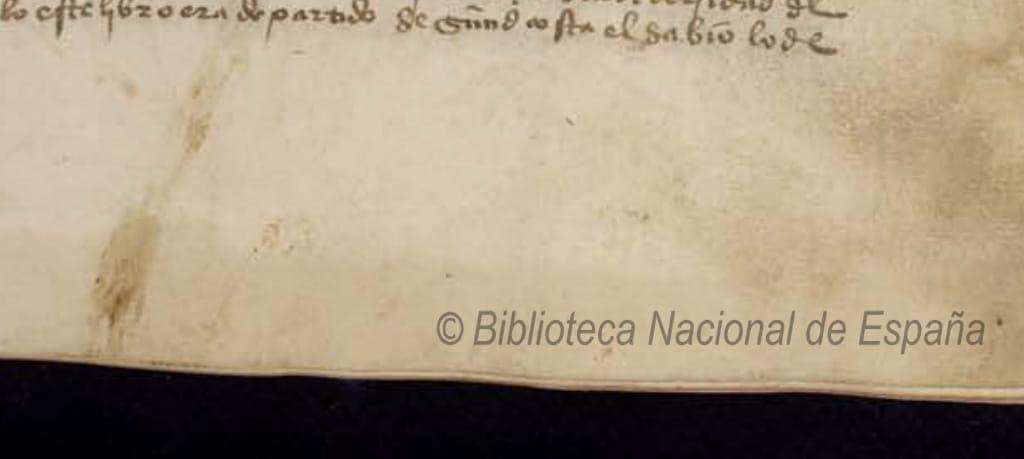 lo este libro era de partido segund costa el sabio lo de
© Biblioteca Nacional de España